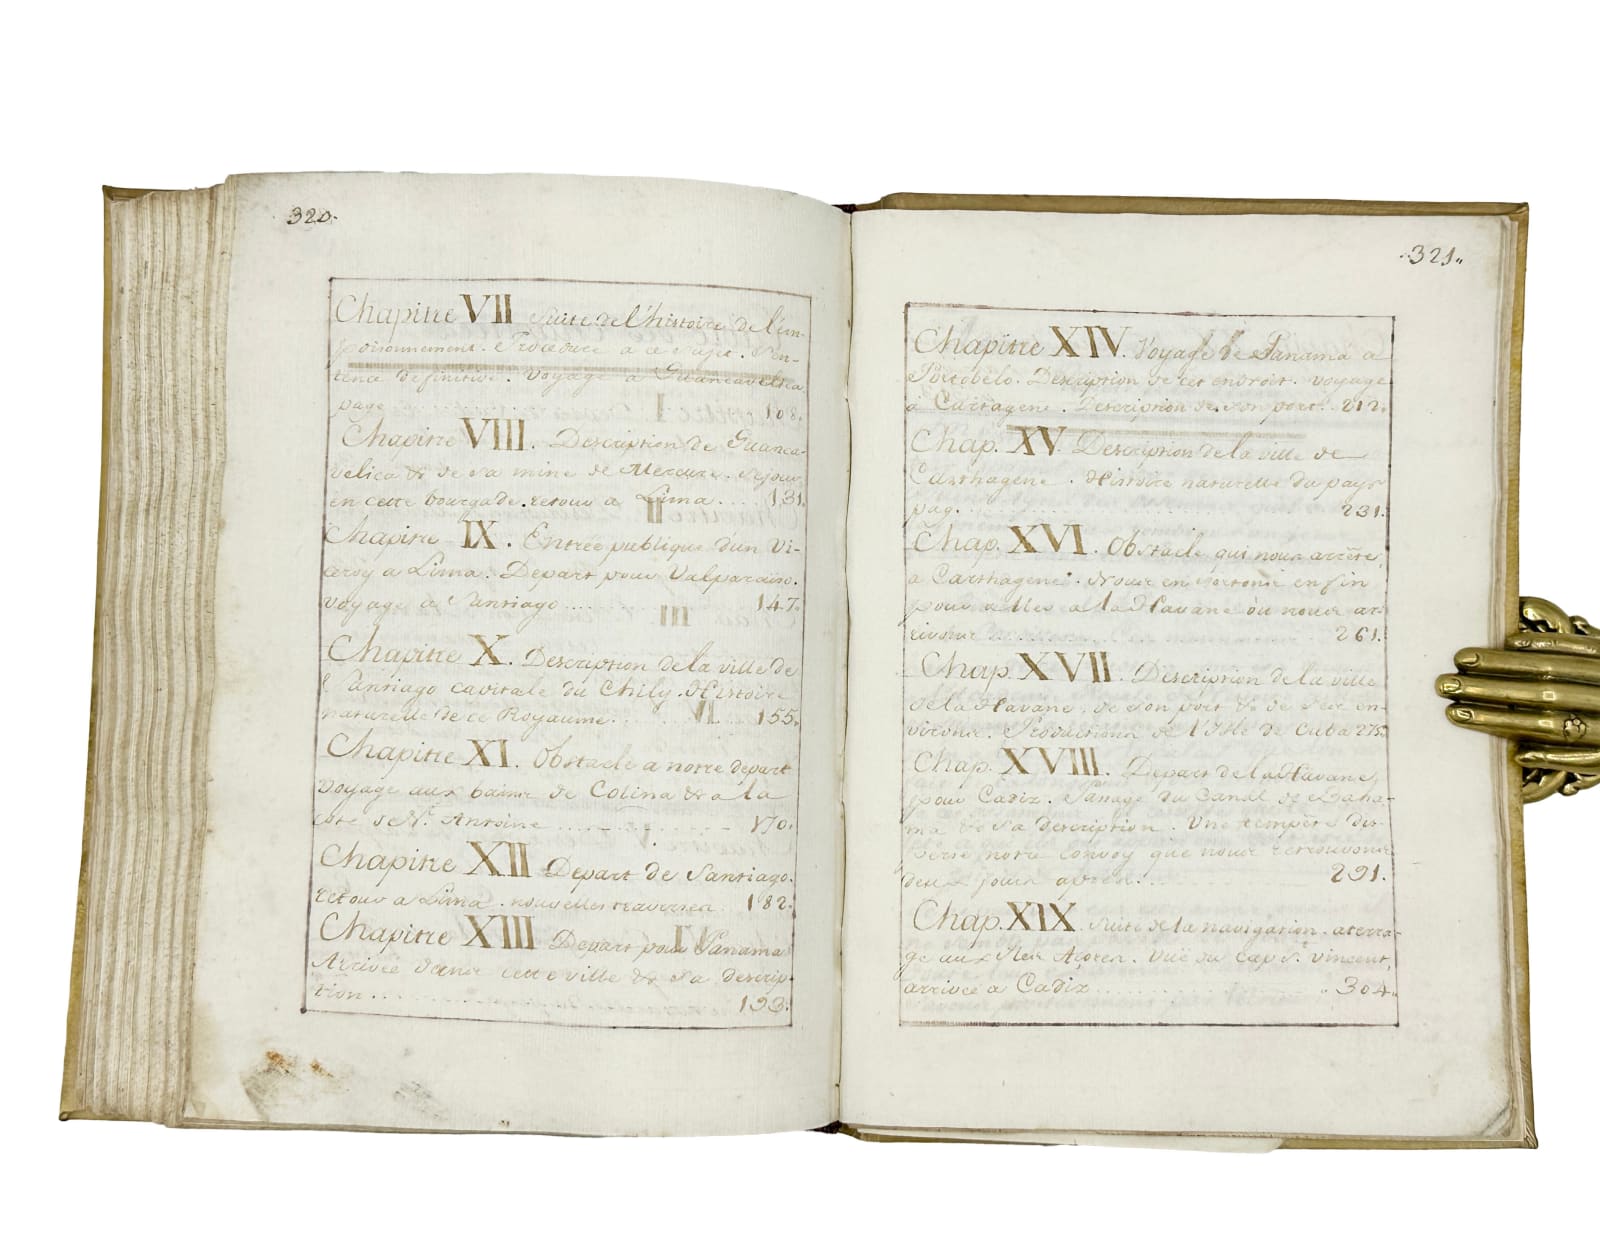 320.
Chapitre VII Suite de l'histoire de l'em-
poisonnement. Procedure a ce sujet. Sen-
tence definitive. Voyage a Guancavelica
page 108.
Chapitre VIII. Description de Guanca-
velica & de sa mine de Mercure. Sejour
en cette bourgade. retour a Lima.... 131.
Chapitre IX. Entrée publique d'un Vi-
ceroy a Lima. Depart pour Valparaiso.
voyage a Santiago.... 147.
Chapitre X. Description de la ville de
Santiago capitale du Chily. Histoire
naturelle de ce Royaume.... 155.
Chapitre XI. Obstacle a notre depart
voyage aux bains de Colina & a la
St. Antoine ........ 170.
Chapitre XII Depart de Santiago.
retour a Lima. nouvelles traverses 182.
Chapitre XIII Depart pour Panama
Arrivée dans cette ville & sa descrip-
tion... 193.
321.
Chapitre XIV. Voyage de Panama a
Portobelo. Description de cet endroit. voyage
à Cartagene. Description de son port. 212.
Chap. XV. Description de la ville de
Carthagene. Histoire naturelle du pays
pag. ........ 231.
Chap. XVI. Obstacle qui nous arrête
a Carthagene. Nous en sortons enfin
pour aller a la Havane où nous ar-
rivons ........ 261.
Chap. XVII. Description de la ville
de la Havane, de son port & de ses en-
virons. Productions de l'Isle de Cuba 275.
Chap. XVIII. Depart de la Havane,
pour Cadix. Passage du Canal de Baha-
ma & sa description. Une tempête dis-
perse notre convoy que nous retrouvons
deux jours après.... 291.
Chap. XIX. Suite de la navigation. aterra-
ge aux Iles Açores. Vüe du Cap St. Vincent,
arrivée a Cadix ........ 304.